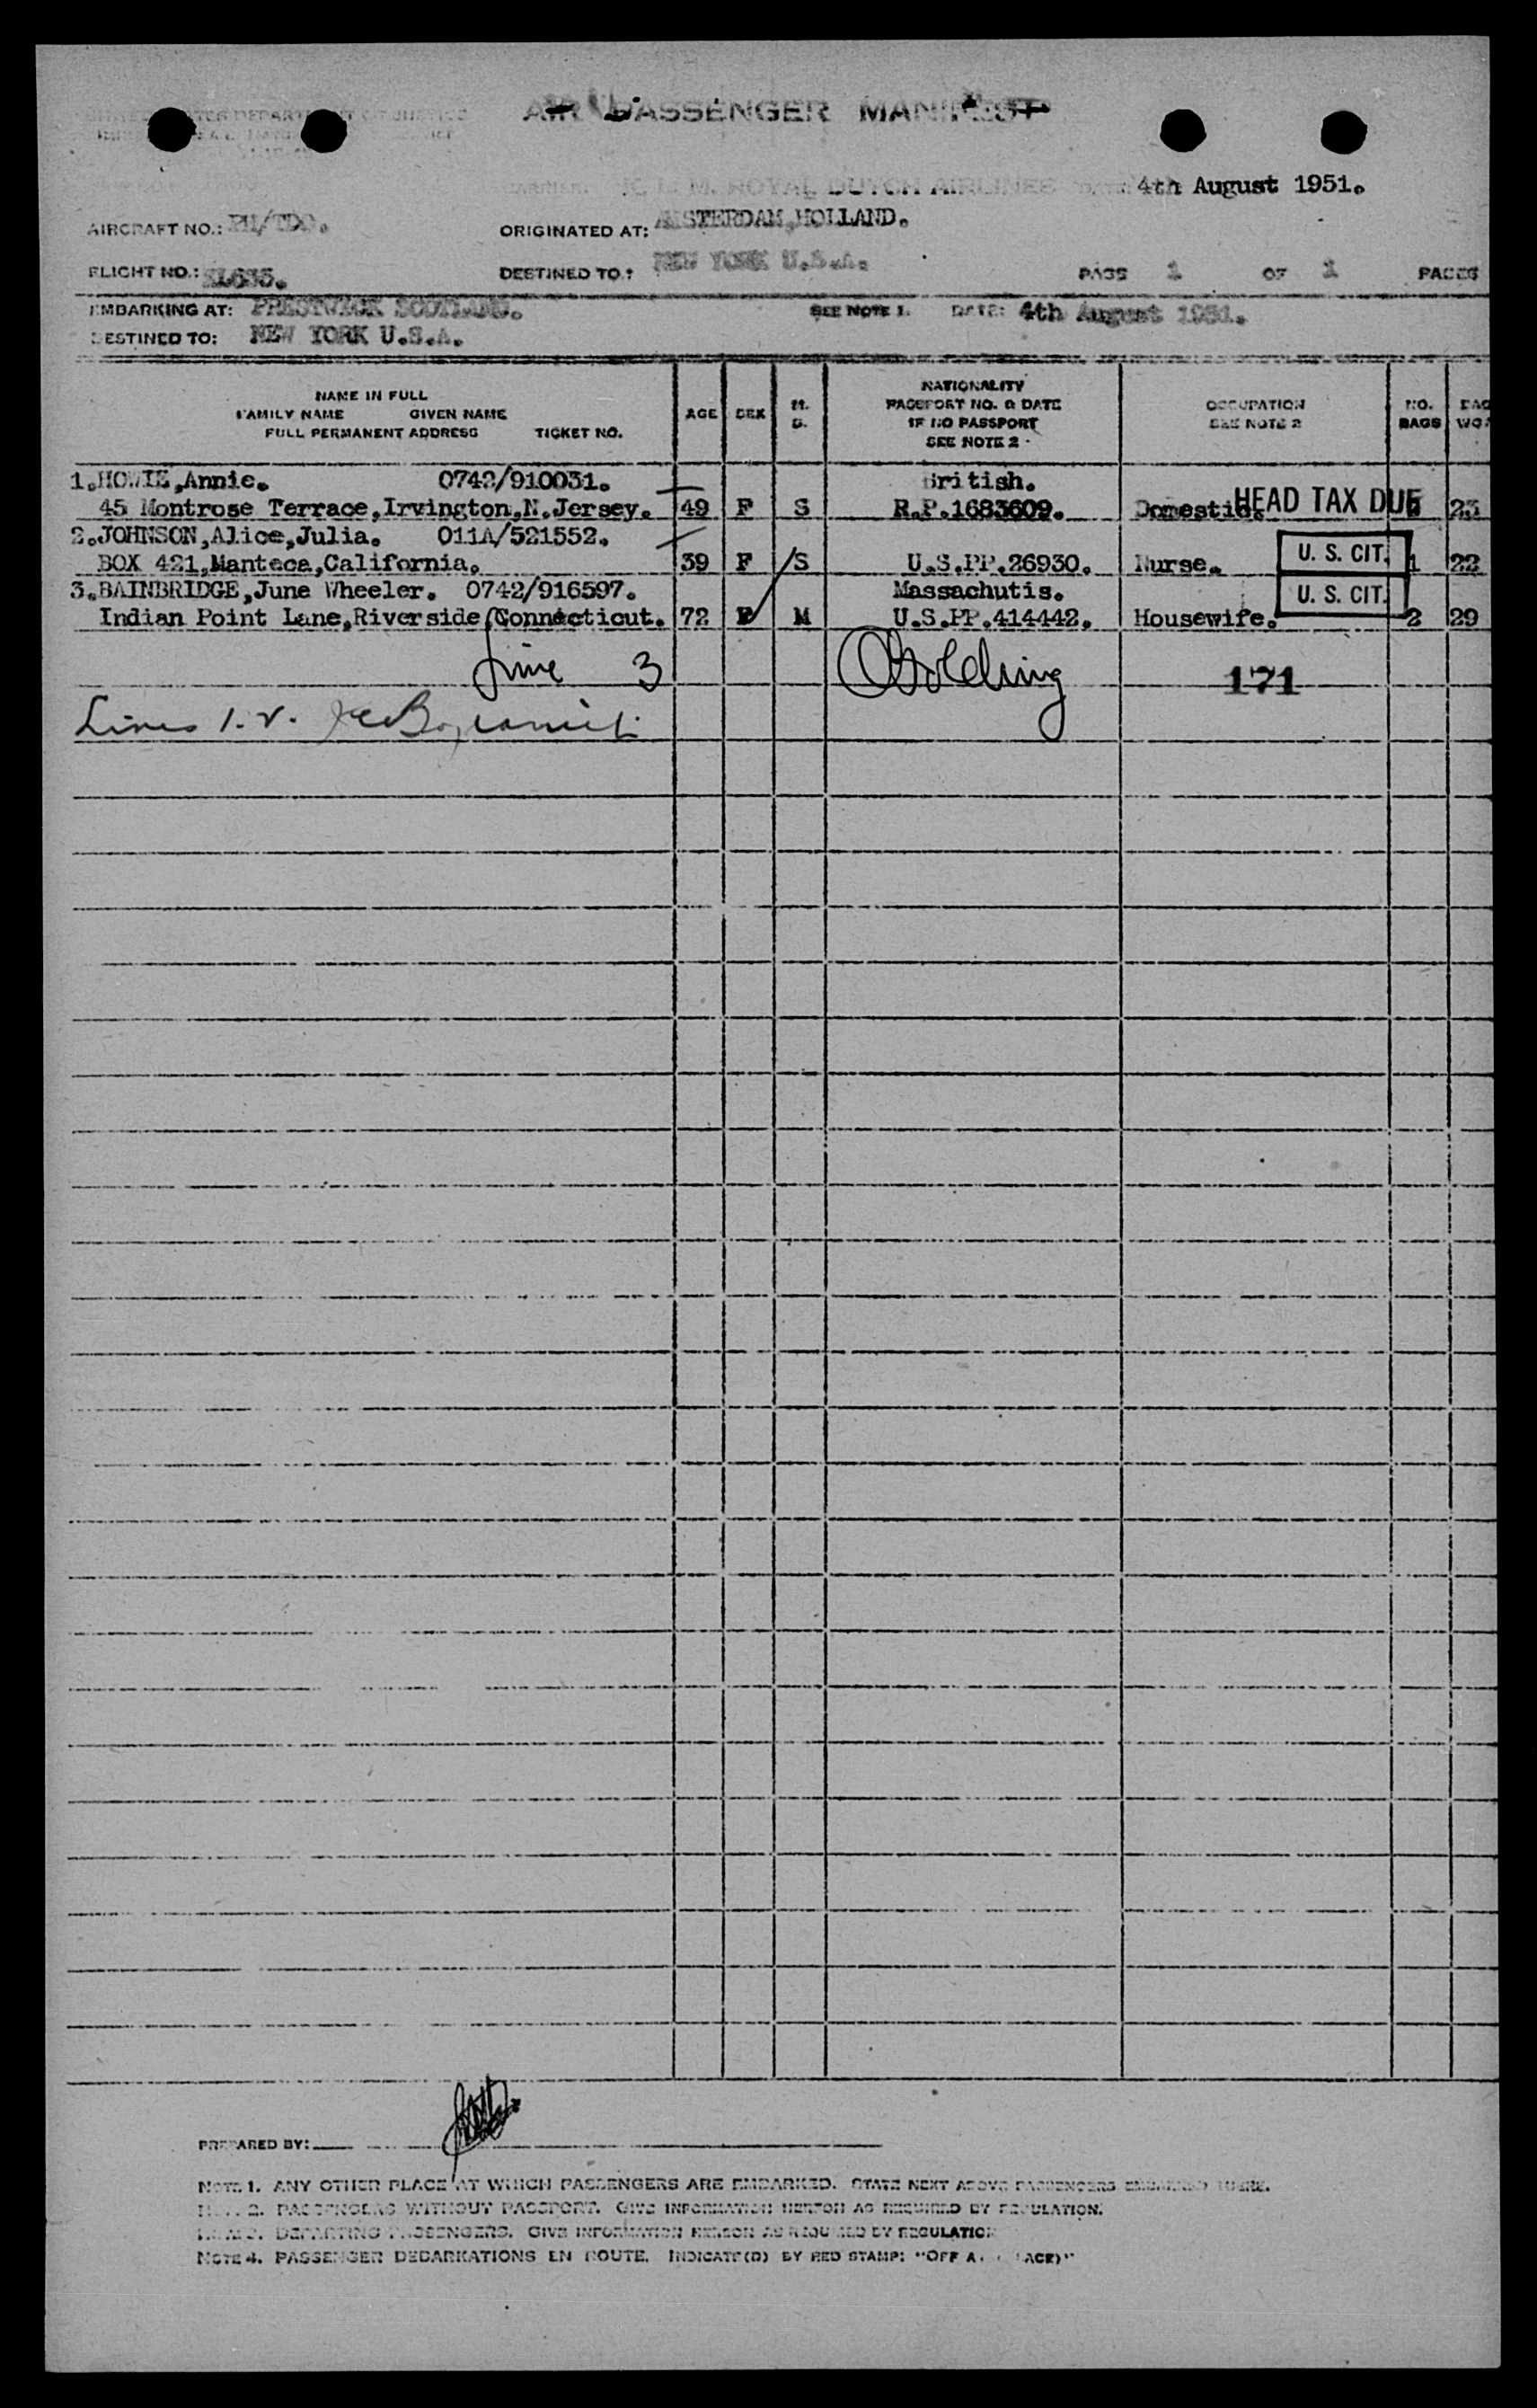 AIR PASSENGER MANIFEST
K. L. M. ROYAL DUTCH AIRLINES 4th August 1951.
AIRCRAFT NO.: PH/TDO. ORIGINATED AT: AMSTERDAM,HOLLAND.
FLIGHT NO.: KL635. DESTINED TO: NEW YORK U.S.A. PAGE 1 OF 1 PAGES
EMBARKING AT: PRESTWICK SCOTLAND. SEE NOTE 1. DATE: 4th August 1951.
DESTINED TO: NEW YORK U.S.A.
NAME IN FULL
FAMILY NAME GIVEN NAME
FULL PERMANENT ADDRESS TICKET NO.
AGE SEX M. S.
NATIONALITY
PASSPORT NO. & DATE
IF NO PASSPORT
SEE NOTE 2
OCCUPATION
SEE NOTE 2
NO. BAGS
1.HOWIE,Annie. 0742/910031. British.
45 Montrose Terrace,Irvington,N.Jersey. 49 F S R.P.1683609. Domestic. HEAD TAX DUE 23
2.JOHNSON,Alice,Julia. 011A/521552.
BOX 421,Manteca,California. 39 F S U.S.PP.26930. Nurse. U. S. CIT. 1 22
3.BAINBRIDGE,June Wheeler. 0742/916597. Massachutis. U. S. CIT.
Indian Point Lane,Riverside,Connecticut. 72 F M U.S.PP.414442. Housewife. 2 29
Line 3 Golding 171
Lines 1. 2.
PREPARED BY:
NOTE 1. ANY OTHER PLACE AT WHICH PASSENGERS ARE EMBARKED. STATE NEXT ABOVE PASSENGERS EMBARKED THERE.
NOTE 2. PASSENGERS WITHOUT PASSPORT. GIVE INFORMATION HEREON AS REQUIRED BY REGULATION.
NOTE 3. DEPARTING PASSENGERS. GIVE INFORMATION HEREON AS REQUIRED BY REGULATION
NOTE 4. PASSENGER DEBARKATIONS EN ROUTE. INDICATE(D) BY RED STAMP: "OFF AT (PLACE)"